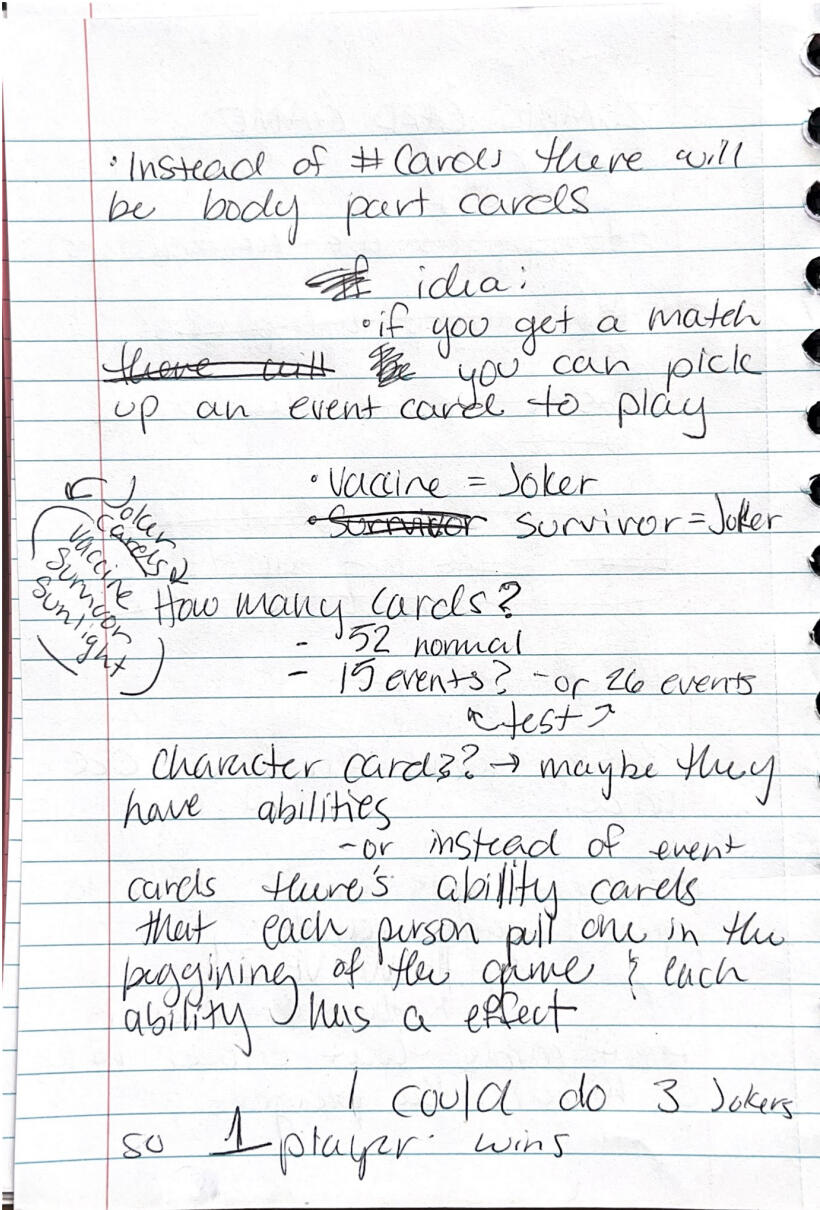 • Instead of # Cards there will
be body part cards
idea:
• if you get a match
there will you can pick
up an event card to play
• Vaccine = Joker
• Survivor survivor = Joker
Joker
cards
vaccine
Survivor
Sunlight
How many cards?
- 52 normal
- 15 events? - or 26 events
↖ test ↗
Character cards? → maybe they
have abilities
- or instead of event
cards there's ability cards
that each person pull one in the
beggining of the game & each
ability has a effect
I could do 3 Jokers
so 1 player wins